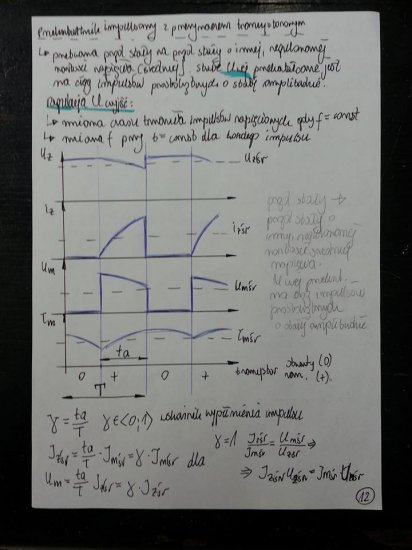 Przekształtnik impulsowy z przerywaczem tranzystorowym
↳ przetwarza prąd stały na prąd stały o innej, regulowanej
wartości napięcia (średniej). Stałe Uwej przekształcane jest
na ciąg impulsów prostokątnych o stałej amplitudzie.
Regulacja U wyjść:
↳ zmiana czasu trwania impulsów napięciowych gdy f = const
↳ zmiana f przy t = const dla każdego impulsu
Uz
Uzśr
iz
izśr
Um
Umśr
Im
Imśr
ta
0 + 0 +
T
tranzystor
otwarty (0)
zam. (+)
prąd stały →
prąd stały o
innej, regulowanej
wartości średniej
napięcia.
U wej przekszt.
na ciąg impulsów
prostokątnych
o stałej amplitudzie
γ = ta/T γ∈<0;1) wskaźnik wypełnienia impulsu
Izśr = ta/T · Imśr = γ · Imśr dla
γ=1 Izśr/Imśr = Umśr/Uzśr ⇒
⇒ Izśr Uzśr = Imśr Umśr
Um = ta/T Izśr = γ · Izśr
12